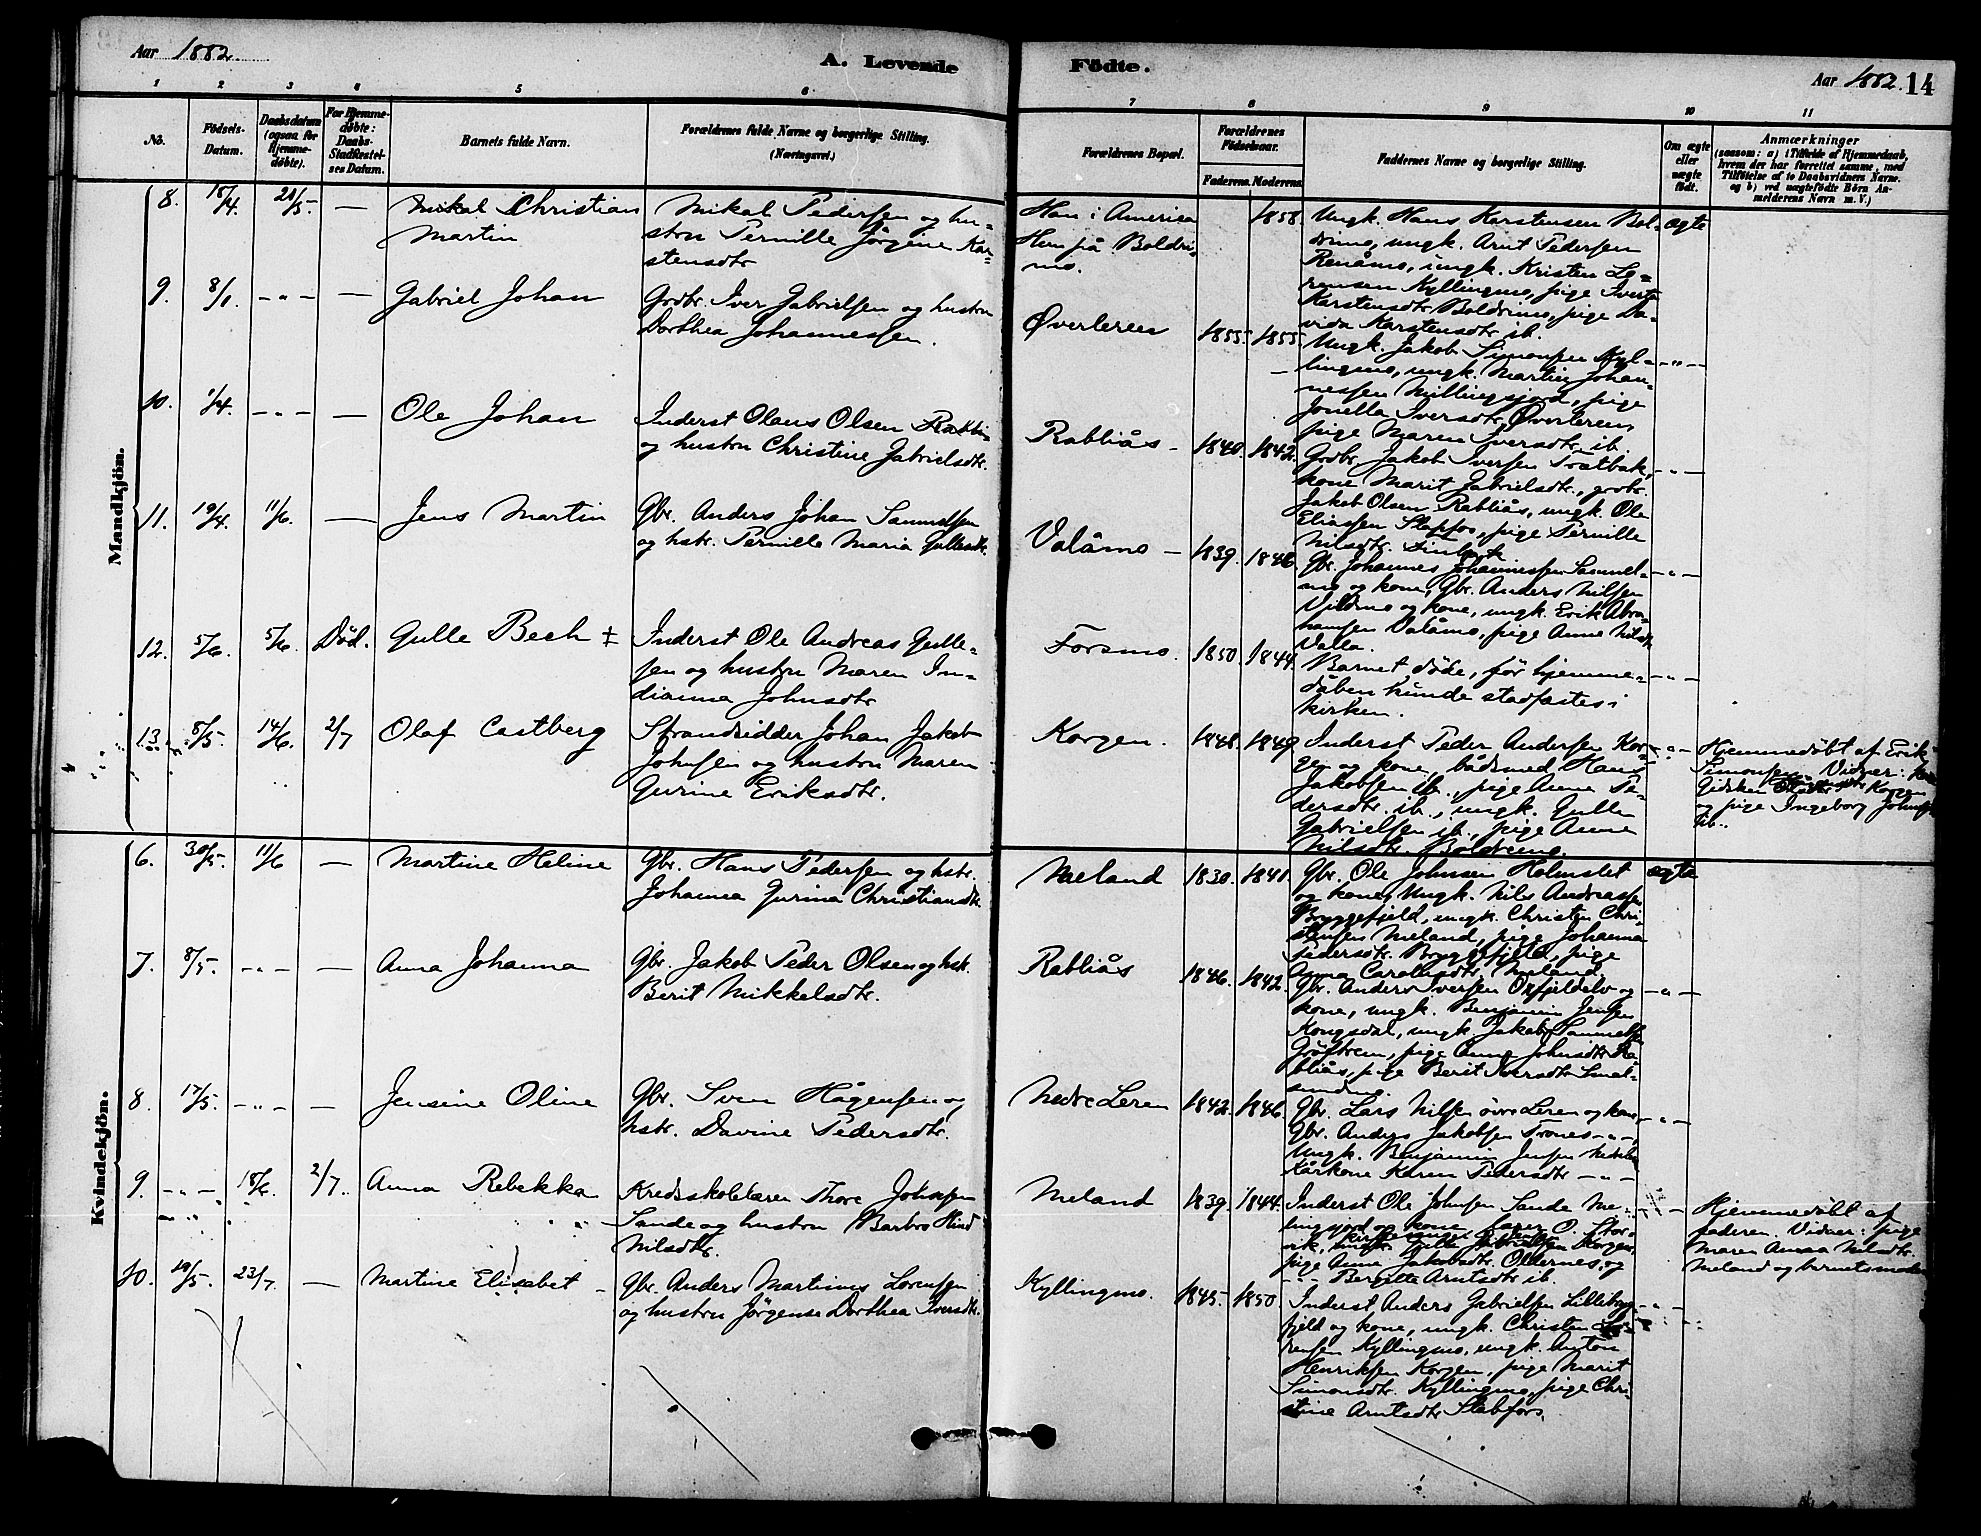 Aar 1882.
A. Levende
Födte.
Aar 1882. 14
1 2 3 4 5 6
7 8 9 10 11
No.
Födsels-Datum.
Daabsdatum (ogsaa for Hjemme-döbte).
For Hjemme-döbte: Daabs-Stadfæstel-ses Datum.
Barnets fulde Navn.
Forældrenes fulde Navne og borgerlige Stilling. (Næringsvei.)
Forældrenes Bopæl.
Forældrenes Födselsaar.
Faderens. Moderens.
Faddernes Navne og borgerlige Stilling.
Om ægte eller uægte födt.
Anmærkninger
(saasom: a) i Tilfælde af Hjemmedaab,
hvem der har forrettet samme, med
Tilföielse af to Daabsvidners Navne.
og b) ved uægtefödte Börn An-
melderens Navn m. V.)
Mandkjön.
8. 18/4. 21/5. — Mikal Christian
Martin
Mikal Pedersen og hu-
stru Pernille Jørgine Kar-
stensdtr
Han i America
Hun på Boldri-
mo.
1858.
Ungk. Hans Karstensen Bol-
drimo, ungk. Arnt Pedersen
Renåmo, ungk. Kristen Lo-
rensen Kyllingmo, pige
Karstensdtr Boldrimo, pige Da-
vida Karstensdtr ib.
ægte
9. 8/1. — " — — Gabriel Johan
Grdbr. Iver Gabrielsen og hustru
Dorthea Johannessen.
Øverleren
1855. 1855.
Ungk. Jakob Simonsen Kyl-
lingmo, ungk. Martin Johan-
nessen Millingsjord, pige
Jonella Iversdtr Øverleren,
pige Maren Iversdtr. ib.
— " —
10. 1/4. — " — — Ole Johan
Inderst Olaus Olsen Rabli
og hustru Christine Gabrielsdtr.
Rabliås
1840. 1842.
Grdbr. Jakob Iversen Trætbak,
kone Marit Gabrielsdtr., grdbr.
Jakob Olsen Rabliås, ungk. Ole
Eliassen Slapfos, pige Pernille
Nilsdtr.
— " —
11. 19/4. 11/6. — Jens Martin
Gbr. Anders Johan Samuelsen
og hstr. Pernille Maria Gullesdtr.
Valåmo
1839. 1846
Gbr. Johannes Johannessen
og kone, Gbr. Anders Nilsen
og kone, ungk. Erik Abra-
hamsen Valåmo, pige Anne Nilsdtr
Valla.
— " —
12. 5/6. 5/6. Död. Gulle Bech ‡
Inderst Ole Andreas Gulle-
sen og hustru Maren In-
dianna Johnsdtr
Forsmo.
1850. 1844.
Barnet döde, för hjemme-
dåben kunde stadfæstes i
kirken.
— " —
13. 8/5. 14/6. 2/7 Olaf Castberg
Strandsidder Johan Jakob
Johnsen og hustru Maren
Gurine Eriksdtr.
Korgen.
1848. 1849.
Inderst Peder Andersen Kor-
gen og kone, bådsmed Hans
Jakobsen ib., pige Anne Pe-
dersdtr. ib., ungk. Gulle
Gabrielsen ib., pige Anne
Nilsdtr. Boldremo.
— " —
Hjemmedøbt af Erik
Simonsen. Vidner:
Gidsken Korgen
og pige Ingeborg Johnsdtr
ib..
Kvindekjön.
6. 30/5. 11/6 — Martine Heline
Gbr. Hans Pedersen og hstr.
Johanna Gurina Christiansdtr.
Meland
1830. 1841.
Gbr. Ole Johnsen Holmslet
og kone, Ungk. Nils Andreassen
Bryggefjeld, ungk. Christen Chri-
stensen Meland, pige Johanna
Pedersdtr. Bryggefjeld, pige
Anna Meland.
ægte
7. 8/5. — " — — Anna Johanna
Gbr. Jakob Peder Olsen og hstr.
Berit Mikkelsdtr.
Rabliås
1846. 1842.
Gbr. Anders Iversen Oxfjeldelv og
kone, ungk. Benjamin Jensen
Kongsdal, ungk. Jakob Samuelsen
pige Anna Johnsdtr Ra-
bliås, pige Berit Iversdtr Smal-
sund.
— " —
8. 17/5. — " — — Jensine Oline
Gbr. Sven Hågensen og
hstr. Davine Pedersdtr.
Nedre Leren
1842. 1846.
Gbr. Lars Nilsen övre Leren og kone,
Gbr. Anders Jakobsen Trones — " —
Ungk. Benjamin Jensen
Kårkone Karen Pedersdtr — " —
— " —
9. — " — 18/6. 2/7. Anna Rebekka
Kredsskolelærer Thore Johnsen
Sande og hustru Barbro
Nilsdtr.
Meland
1839. 1844.
Inderst Ole Johnsen Sande Me-
og kone, O. Stor-
vik, Korgen,
pige Anne Jakobsdtr. Oldernes, og
— " — Bergitte Arntsdtr ib.
Hjemmedøbt af
faderen. Vidner: pige
Maren Anna Nilsdtr.
Meland og barnets moder
10. 19/5. 23/7. — Martine Elisabet
Gbr. Anders Martinus Lorensen
og hustru Jørgense Dorthea Iversdtr.
Kyllingmo.
1845. 1850
Inderst Anders Gabrielsen
fjeld og kone, ungk. Christen Lo-
rensen Kyllingmo, ungk. Anton
Henriksen Korgen, pige Marit
Simonsdtr. Kyllingmo, pige Chri-
stine Arntsdtr Slabfors.
— " —